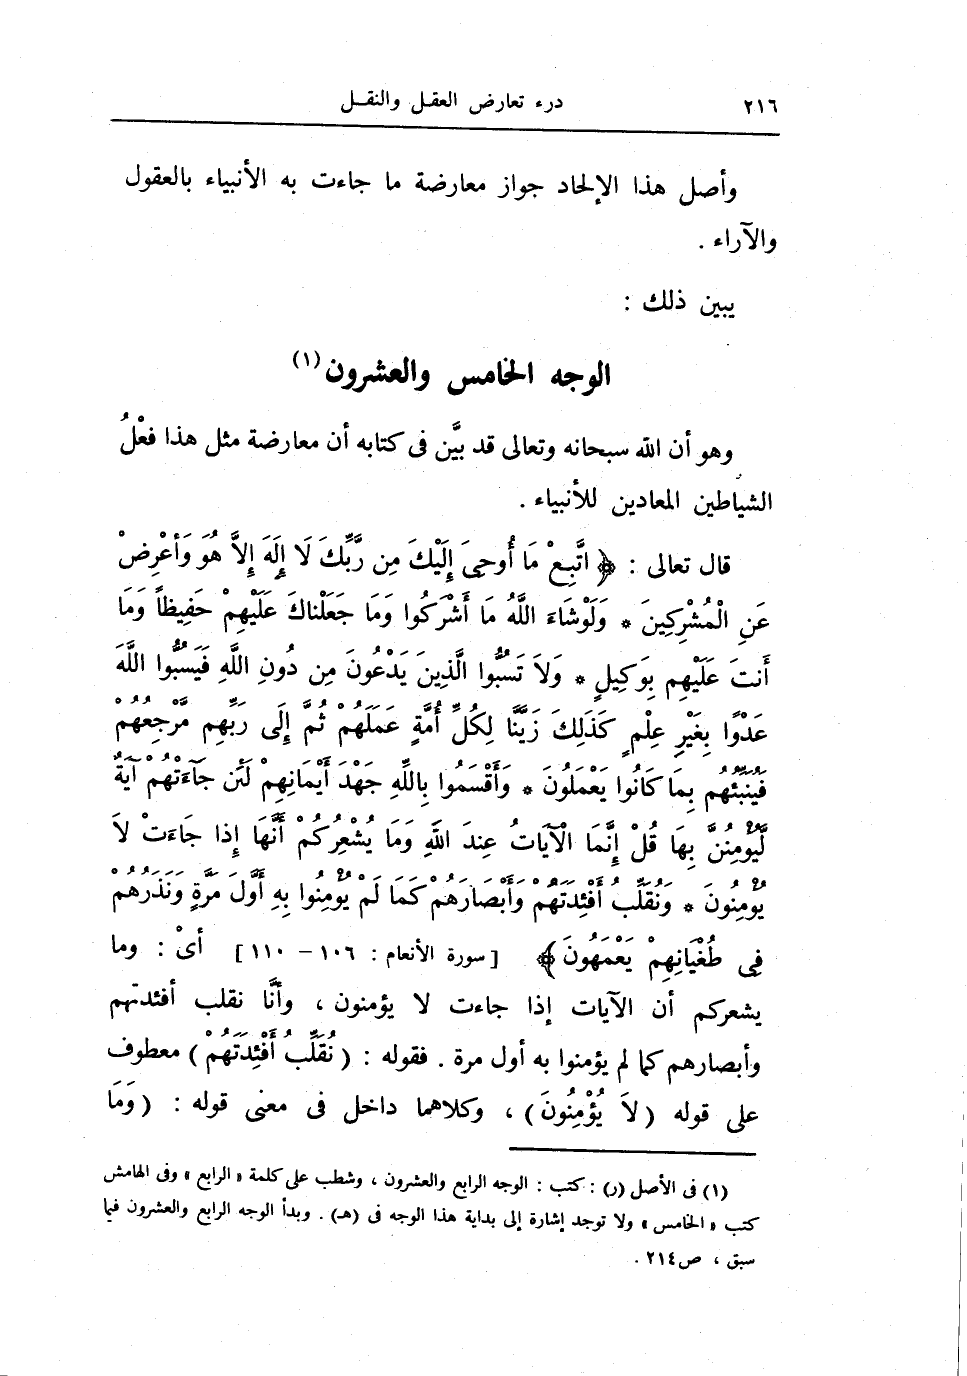 ٢١٦ درء تعارض العقل والنقل
وأصل هذا الإلحاد جواز معارضة ما جاءت به الأنبياء بالعقول
والآراء .
يبين ذلك :
الوجه الخامس والعشرون (١)
وهو أن الله سبحانه وتعالى قد بيَّن فى كتابه أن معارضة مثل هذا فعْلُ
الشياطين المعادين للأنبياء .
قال تعالى : ﴿ اتَّبِعْ مَا أُوحِىَ إِلَيْكَ مِن رَّبِّكَ لَا إِلَهَ إِلاَّ هُوَ وَأَعْرِضْ
عَنِ الْمُشْرِكِينَ * وَلَوْشَاءَ اللَّهُ مَا أَشْرَكُوا وَمَا جَعَلْناكَ عَلَيْهِمْ حَفِيظاً وَمَا
أَنتَ عَلَيْهِم بِوَكِيلٍ * وَلاَ تَسُبُّوا الَّذِينَ يَدْعُونَ مِن دُونِ اللَّهِ فَيَسُبُّوا اللَّهَ
عَدْوًا بِغَيْرِ عِلْمٍ كَذَلِكَ زَيَّنَّا لِكُلِّ أُمَّةٍ عَمَلَهُمْ ثُمَّ إِلَى رَبِّهِم مَّرْجِعُهُمْ
فَيُنَبِّئُهُم بِمَا كَانُوا يَعْمَلُونَ * وَأَقْسَمُوا بِاللَّهِ جَهْدَ أَيْمَانِهِمْ لَئِن جَآءَتْهُمْ آيَةٌ
لَّيُؤْمِنُنَّ بِهَا قُلْ إِنَّمَا الْآيَاتُ عِندَ اللَّهِ وَمَا يُشْعِرُكُمْ أَنَّهَا إِذا جَاءَتْ لاَ
يُؤْمِنُونَ * وَنُقَلِّبُ أَفْئِدَتَهُمْ وَأَبْصَارَهُمْ كَمَا لَمْ يُؤْمِنُوا بِهِ أَوَّلَ مَرَّةٍ وَنَذَرُهُمْ
فِى طُغْيَانِهِمْ يَعْمَهُونَ ﴾ [ سورة الأنعام : ١٠٦ – ١١٠ ] أىْ : وما
يشعركم أن الآيات إذا جاءت لا يؤمنون ، وأنَّا نقلب أفئدتهم
وأبصارهم كما لم يؤمنوا به أول مرة . فقوله : ( نُقَلِّبُ أَفْئِدَتَهُمْ ) معطوف
على قوله ( لاَ يُؤْمِنُونَ ) ، وكلاهما داخل فى معنى قوله : ( وَمَا
(١) فى الأصل (ر) : كتب : الوجه الرابع والعشرون ، وشطب على كلمة « الرابع » وفى الهامش
كتب « الخامس » ولا توجد إشارة إلى بداية هذا الوجه فى (هـ) . وبدأ الوجه الرابع والعشرون فيما
سبق ، ص٢١٤ .